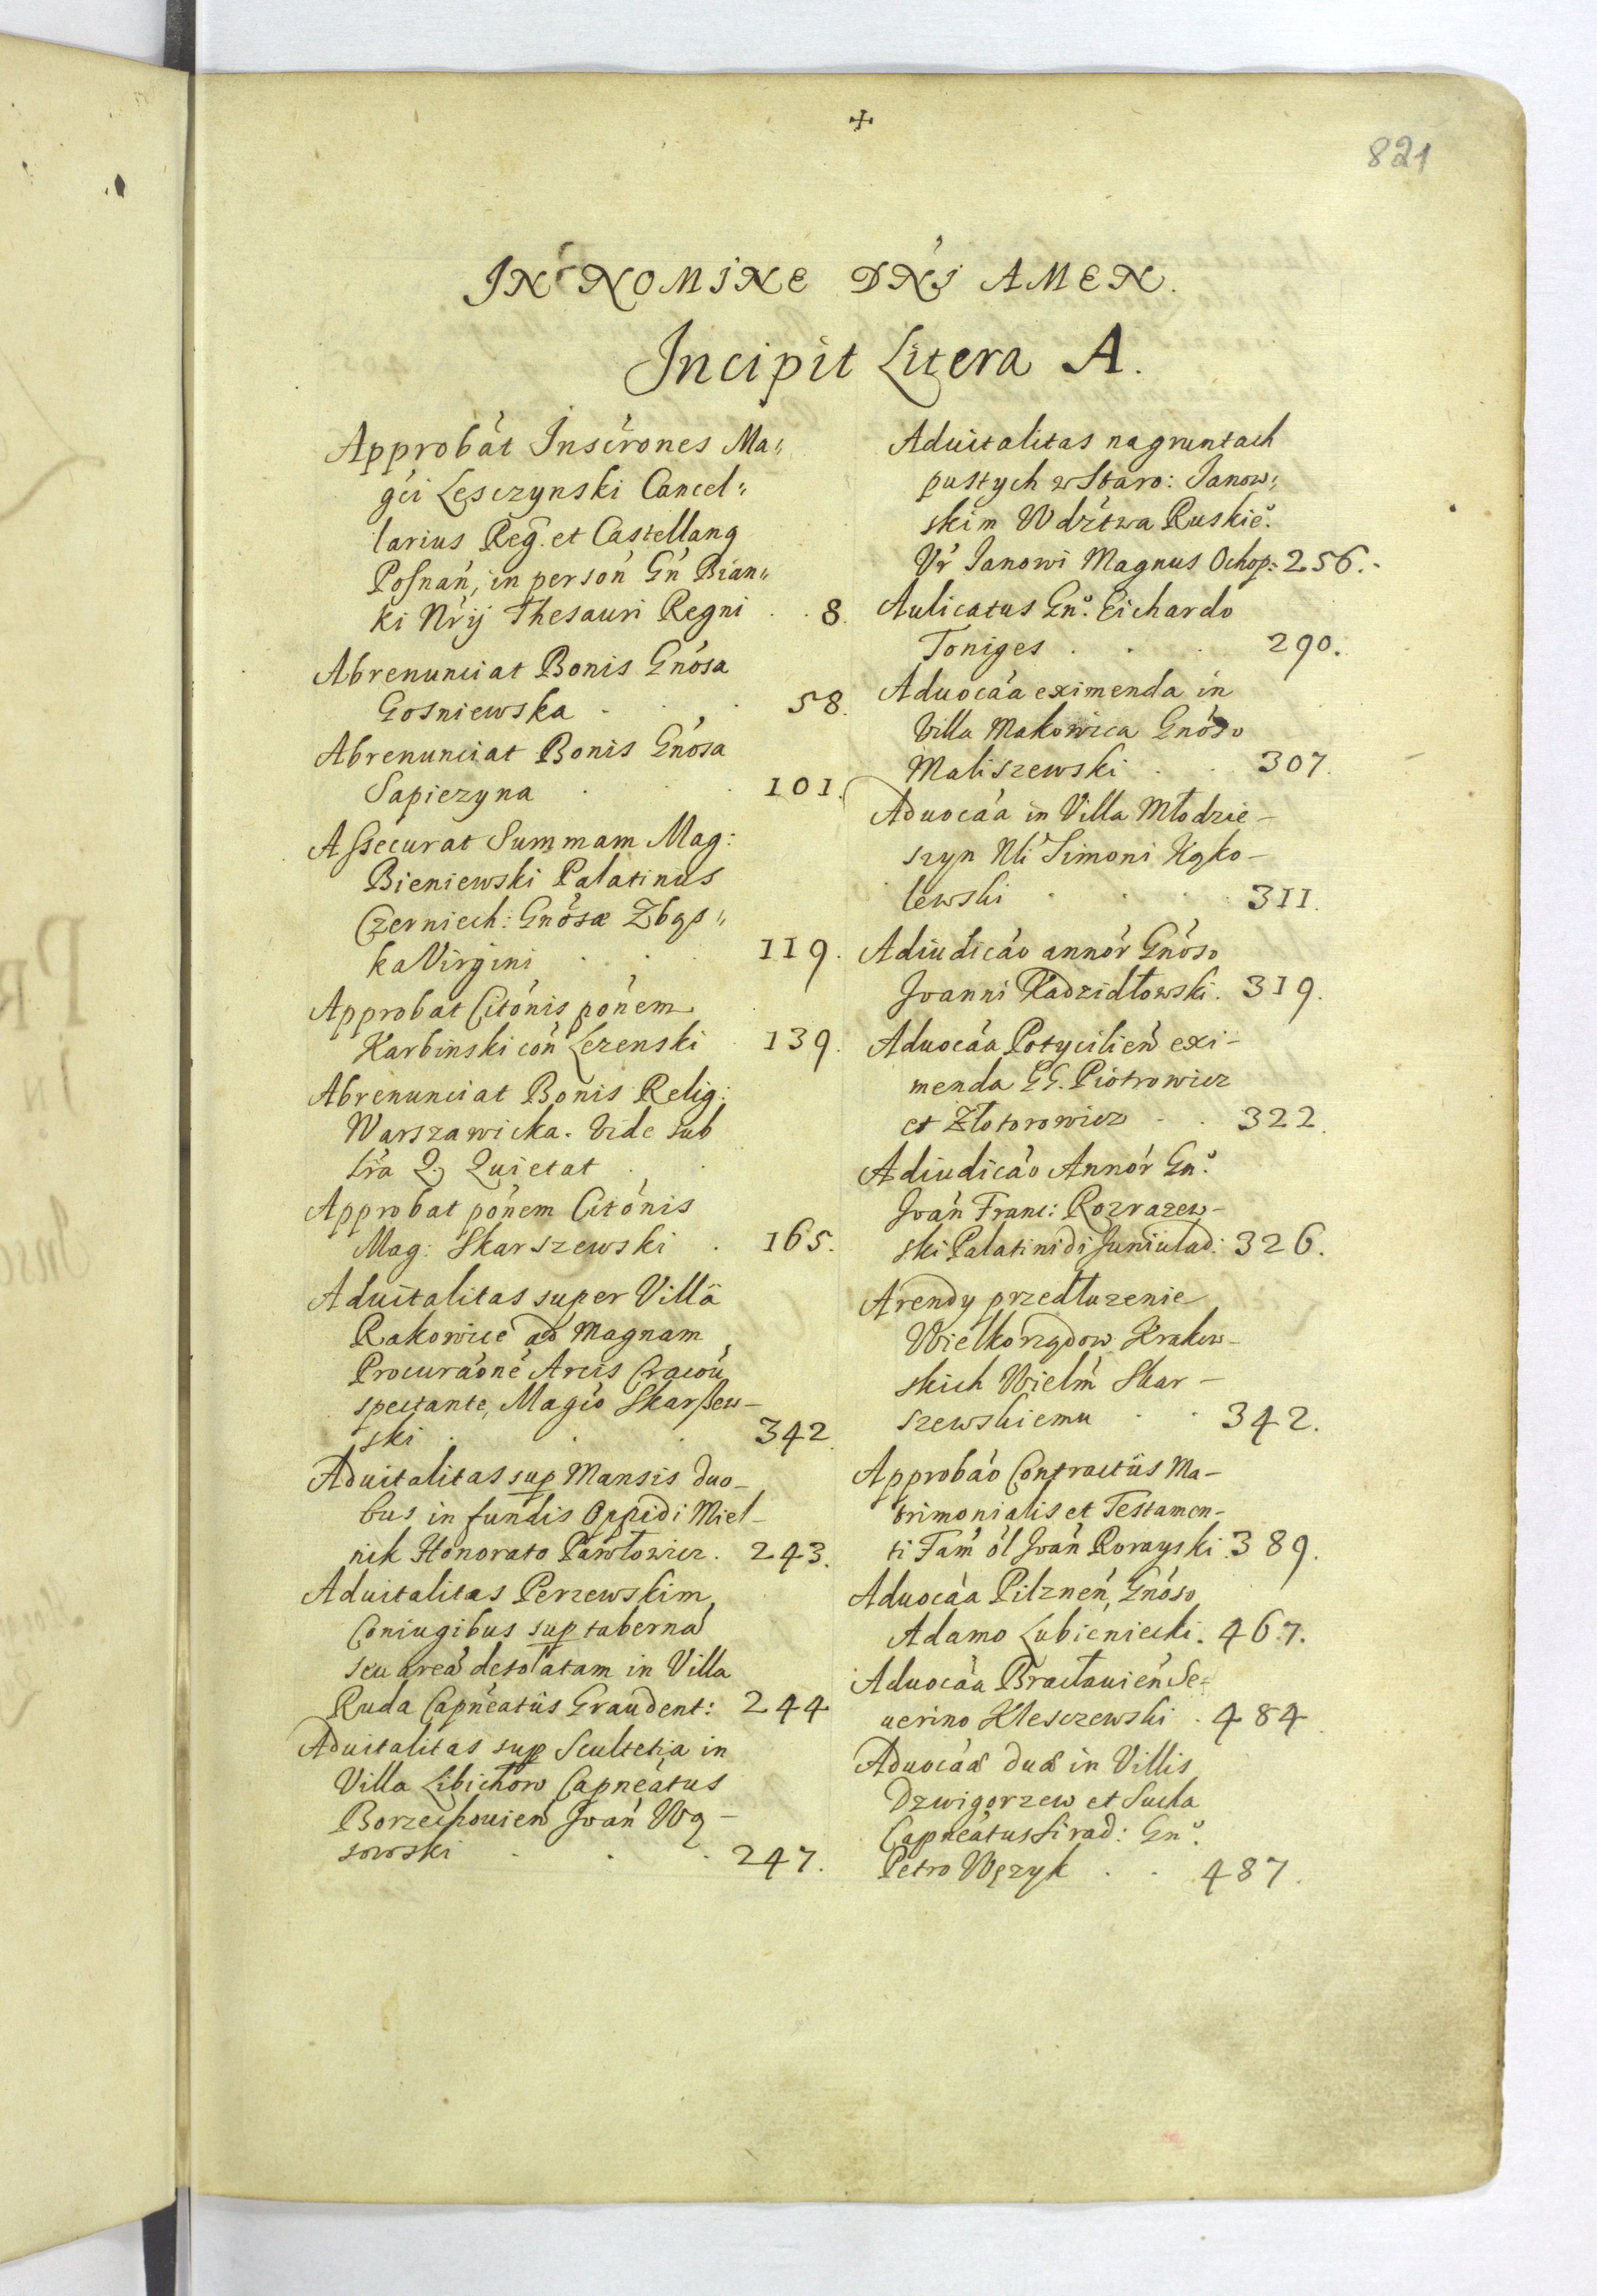 ✢
821
IN NOMINE DN̄I AMEN.
Incipit Litera A.
Approbát Inscrónes Ma„
gći Lesczynski Cancel„
larius Reg. et Castellang
Posnań, in persoń Gń Bian„
ki Nrÿ Thesauri Regni . . 8.
Abrenunciat Bonis Gnósa
Gosniewska . . . 58.
Abrenunciat Bonis Gnósa
Sapiezyna . . 101.
Assecurat Summam Mag:
Bieniewski Palatinus
Czerniech: Gnósæ Zbąs„
ka Virgini . . . 119.
Approbat Citónis pónem
Karbinski cón Lezenski 139.
Abrenunciat Bonis Relig:
Warszawicka. Vide sub
lrá Q Quietat . .
Approbat pónem Citónis
Mag: Skarszewski . 165.
Aduitalitas super Villā
Rakowice ad Magnam
Procuraóné Arcis Cracoú
spectante, Magćo Skarßew-
ski . . . 342.
Aduitalitas sup Mansis duo-
bus in fundis Oppidi Miel-
nik Honorato Pawłowicz. 243.
Aduitalitas Perzewskim
Coniugibus sup taberná
seu areá desolatam in Villa
Ruda Capnéatus Graudent: 244
Aduitalitas sup Scultetia in
Villa Libichow Capneátus
Borzechouień Joań Wą-
sowski . . . 247.
Aduitalitas na gruntach
pustych w Staro: Janow„
skim Wdźtwa Ruskie͛.
Vŕ Janowi Magnus Ochop: 256.-
Aulicatus Gn͛o. Eichardo
Toniges . . . 290.
Aduocáa eximenda in
Villa Makowica Gnóso
Maliszewski . . 307.
Aduocáa in Villa Młodzie-
szyn Nli Simoni Kąko-
lewski . . . 311.
Adiudicáo annór Gnóso
Joanni Radzidłowski. 319.
Aduocáa Potycilień exi-
menda GG. Piotrowicz
et Złotorowicz . . 322.
Adiudicáo Annór Gn͛o.
Joań Franc: Rozrazew-
ski Palatinidi Juniulad: 326.
Arendy przedłuzenie
Wielkorządow Krakow-
skich Wielḿ Skar-
szewskiemu . . 342.
Approbáo Contractûs Ma-
trimonialis et Testamen-
ti Fam ól Joań Rorayski. 389.
Aduocáa Pilzneń, Gnóso
Adamo Lubieniecki. 467.
Aduocáa Bracłauień Se-
uerino Kleszewski . 484.
Aduocáæ duæ in Villis
Dzwigorzew et Sucha
Capneátus Sirad: Gn͛o.
Petro Wężyk . . 487.